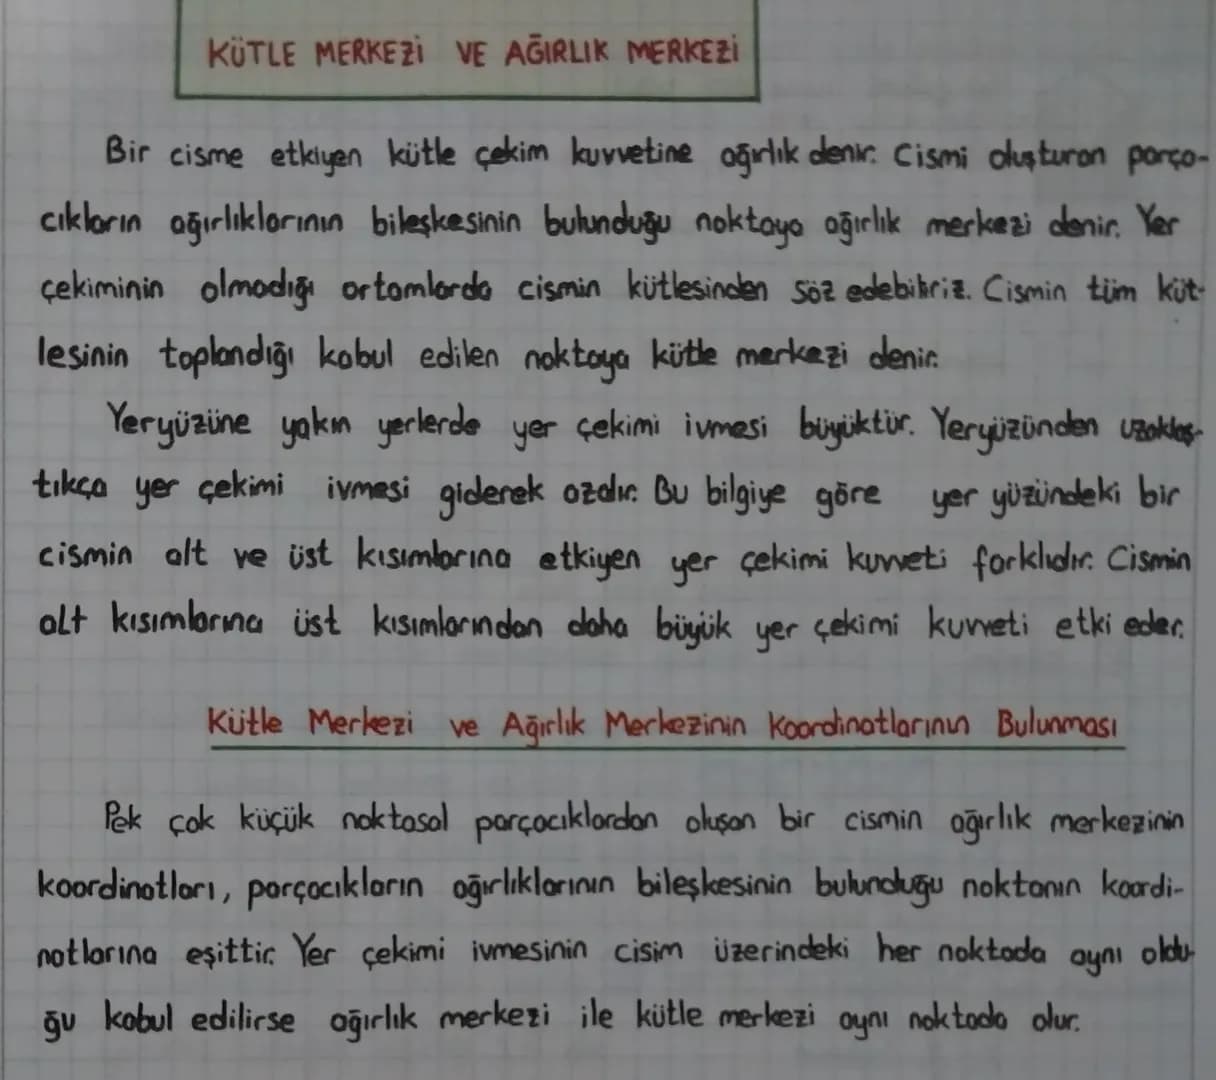 KÜTLE MERKEZİ VE AĞIRLIK MERKEZİ
Bir cisme etkiyen kütle çekim kuvvetine ağırlık denir. Cismi oluşturan parça-
cıkların ağırlıklarının bileşkesinin bulunduğu noktaya ağırlık merkezi denir. Yer
çekiminin olmadığı ortamlarda cismin kütlesinden söz edebiliriz. Cismin tüm küt-
lesinin toplandığı kabul edilen noktaya kütle merkezi denir.
Yeryüzüne yakın yerlerde yer çekimi ivmesi büyüktür. Yeryüzünden uzaklaş-
tıkça yer çekimi ivmesi giderek azalır. Bu bilgiye göre yer yüzündeki bir
cismin alt ve üst kısımlarına etkiyen yer çekimi kuvveti farklıdır. Cismin
alt kısımlarına üst kısımlarından daha büyük yer çekimi kuvveti etki eder.
Kütle Merkezi ve Ağırlık Merkezinin Koordinatlarının Bulunması
Pek çok küçük noktasal parçacıklardan oluşan bir cismin ağırlık merkezinin
koordinatları, parçacıkların ağırlıklarının bileşkesinin bulunduğu noktanın koordi-
natlarına eşittir. Yer çekimi ivmesinin cisim üzerindeki her noktada aynı oldu-
ğu kabul edilirse ağırlık merkezi ile kütle merkezi aynı noktada olur.